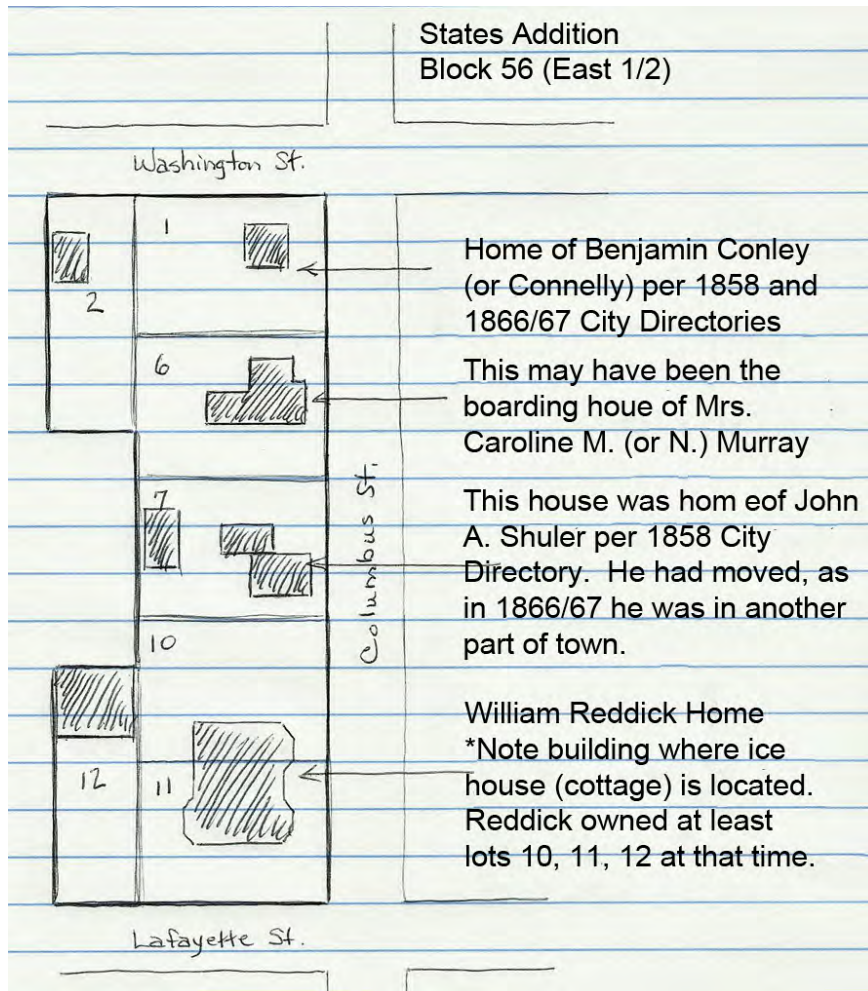 States Addition
Block 56 (East 1/2)
Washington St.
1
2
Home of Benjamin Conley
(or Connelly) per 1858 and
1866/67 City Directories
6
This may have been the
boarding houe of Mrs.
Caroline M. (or N.) Murray
Columbus St.
7
This house was hom eof John
A. Shuler per 1858 City
Directory. He had moved, as
in 1866/67 he was in another
part of town.
10
William Reddick Home
*Note building where ice
house (cottage) is located.
Reddick owned at least
lots 10, 11, 12 at that time.
12
11
Lafayette St.